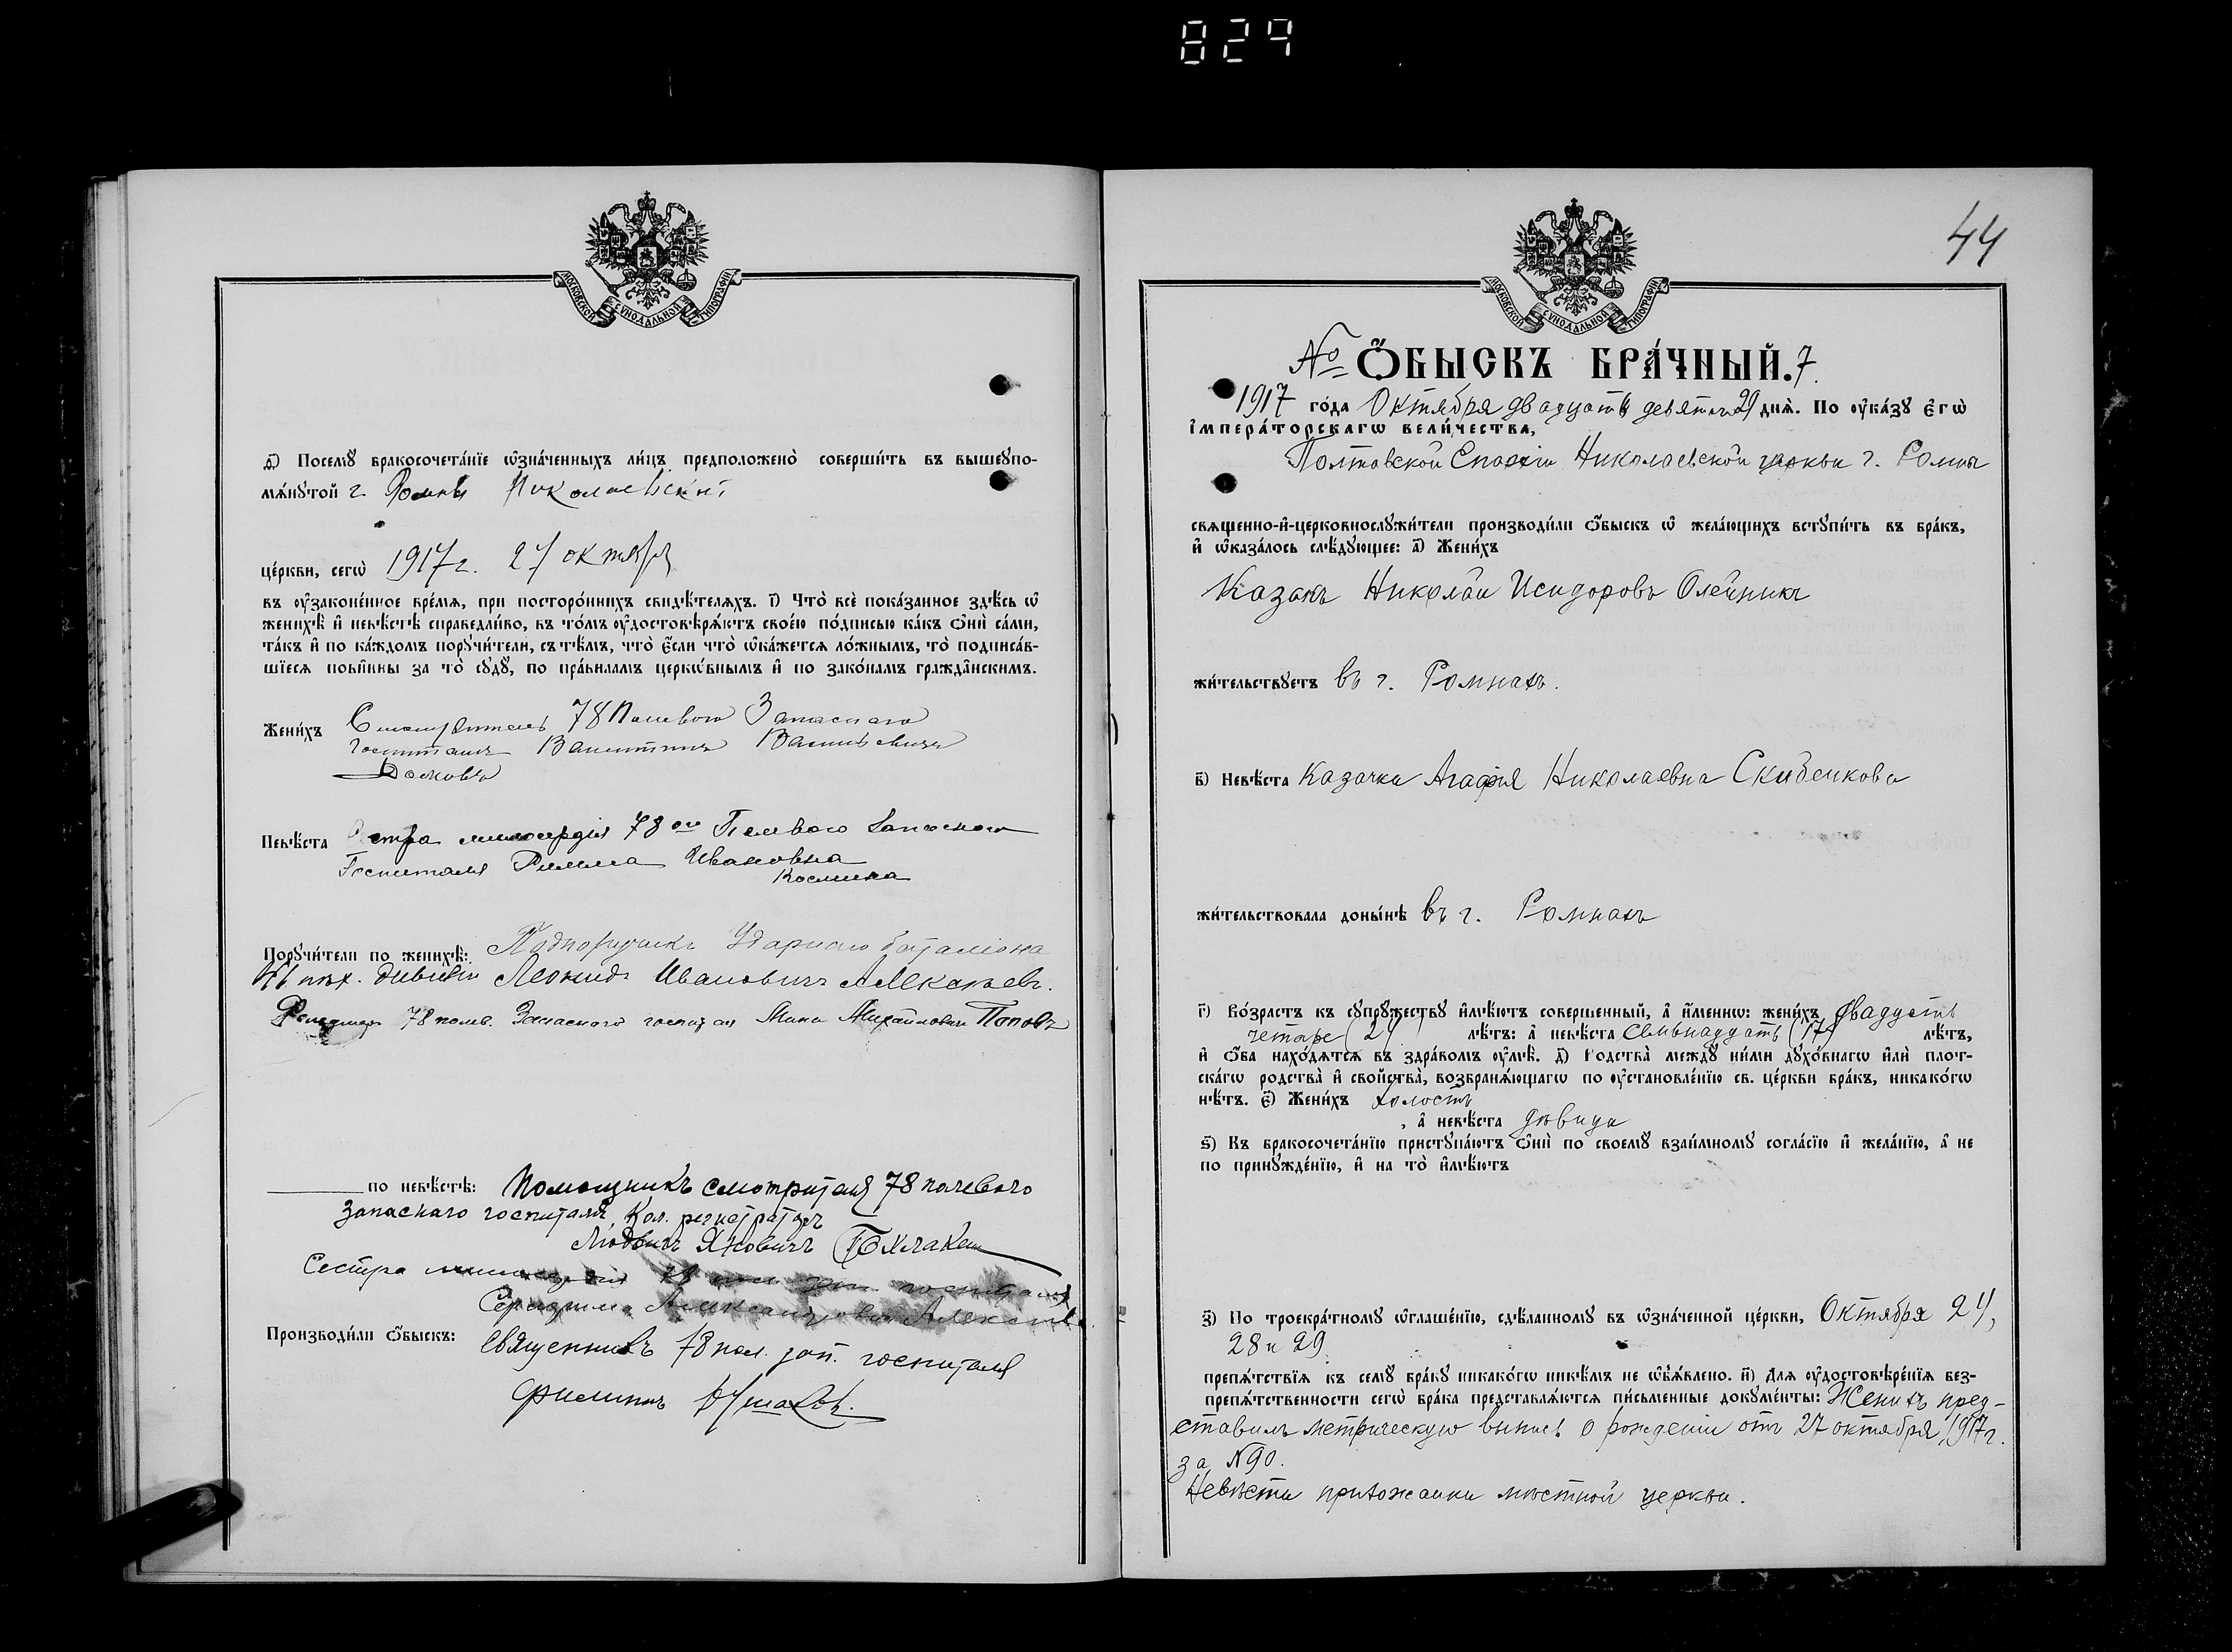 829
МОСКОВСКОЙ СѴНОДАЛЬНОЙ ТИПОГРАФІИ
ѳ҃) Посемꙋ̀ бракосочета́нїе ѡ҆зна́ченныхъ ли́цъ предположено̀ соверши́ть въ вышеꙋпо-
мѧ́нꙋтой г. Ромны Николаевской
це́ркви, сегѡ̀ 1917 г. 27 октября
въ ᲂу҆законе́нное вре́мѧ, при посторо́ннихъ свидѣ́телѧхъ. і҃) Что̀ всѐ пока́занное здѣ́сь ѡ҆
женихѣ̀ и҆ невѣ́стѣ справедли́во, въ то́мъ ᲂу҆достовѣрѧ́ютъ свое́ю по́дписью ка́къ ѻ҆нѝ са́ми,
та́къ и҆ по ка́ждомъ порꙋчи́тели, съ тѣ́мъ, что̀ є҆́сли что̀ ѡ҆ка́жетсѧ ло́жнымъ, то̀ подписа́в-
шїесѧ пови́нны за то̀ сꙋдꙋ̀, по пра́виламъ церко́внымъ и҆ по зако́намъ гражда́нскимъ.
Жени́хъ Смотритель 78 Полевого Запаснаго
Госпиталя Валентинъ Васильевичъ
Невѣ́ста Сестра милосердія 78го Полевого Запасного
Госпиталя Римма Ивановна
Космина
Порꙋчи́тели по женихѣ̀: Подпоручикъ Ударнаго баталіона
пѣх. дивизіи Леонидъ Ивановичъ
78 полев. Запасного госпиталя Михайловичъ Поповъ
по невѣ́стѣ: Помощникъ смотрителя 78 полевого
Запаснаго госпиталя, Кол. регистраторъ
Людвигъ Яновичъ
Сестра милосердія 78 пол зап госпиталя
Серафима Александровна
Производи́ли ѻ҆́быскъ: Священникъ 78 пол. зап. госпиталя
Филиппъ Ушаковъ.
44
МОСКОВСКОЙ СѴНОДАЛЬНОЙ ТИПОГРАФІИ
№ Ѻ҆́БЫСКЪ БРА́ЧНЫЙ. 7.
1917 го́да Октября двадцать девятаго 29 днѧ̀. По ᲂу҆ка́зꙋ є҆гѡ̀
і҆мпера́торскагѡ вели́чества,
Полтавской Епархіи Николаевской церкви г. Ромны
свѧще́нно-и҆-церковнослꙋжи́тели производи́ли ѻ҆́быскъ ѡ҆ жела́ющихъ встꙋпи́ть въ бра́къ,
и҆ ѡ҆каза́лось слѣ́дꙋющее: а҃) Жени́хъ
Казакъ Николай Исидоровъ Олейникъ
жи́тельствꙋетъ въ г. Ромнахъ.
в҃) Невѣ́ста Казачка Агафія Николаевна Скибенкова
жи́тельствовала доны́нѣ въ г. Ромнахъ
г҃) Во́зрастъ къ сꙋпрꙋ́жествꙋ и҆мѣ́ютъ соверше́нный, а҆ и҆́менно: жени́хъ двадцать
четыре (24) лѣ́тъ: а҆ невѣ́ста семьнадцать (17) лѣ́тъ,
и҆ ѻ҆́ба нахо́дѧтсѧ въ здра́вомъ ᲂу҆мѣ̀. д҃) Родства̀ междꙋ̀ ни́ми дꙋхо́внагѡ и҆лѝ плот-
ска́гѡ родства̀ и҆ сво́йства̀, возбранѧ́ющагѡ по ᲂу҆становле́нїю св. це́ркви бра́къ, никако́гѡ
нѣ́тъ. є҃) Жени́хъ холостъ
, а҆ невѣ́ста дѣвица
ѕ҃) Къ бракосочета́нїю пристꙋпа́ютъ ѻ҆нѝ по своемꙋ̀ взаи́мномꙋ согла́сїю и҆ жела́нїю, а҆ не
по принꙋжде́нїю, и҆ на то̀ и҆мѣ́ютъ
з҃) По троекра́тномꙋ ѡ҆глаше́нїю, сдѣ́ланномꙋ въ ѡ҆зна́ченной це́ркви, Октября 24,
28 и 29
препѧ́тствїѧ къ семꙋ̀ бра́кꙋ никако́гѡ никѣ́мъ не ѡ҆б̾ѧ́влено. и҃) Длѧ ᲂу҆достовѣре́нїѧ без-
препѧ́тственности сегѡ̀ бра́ка представлѧ́ютсѧ пи́сьменные докꙋме́нты: Женихъ пред-
ставилъ метрическую выпись о рожденіи отъ 27 октября 1917 г.
за N 90.
Невѣста прихожанка мѣстной церкви.